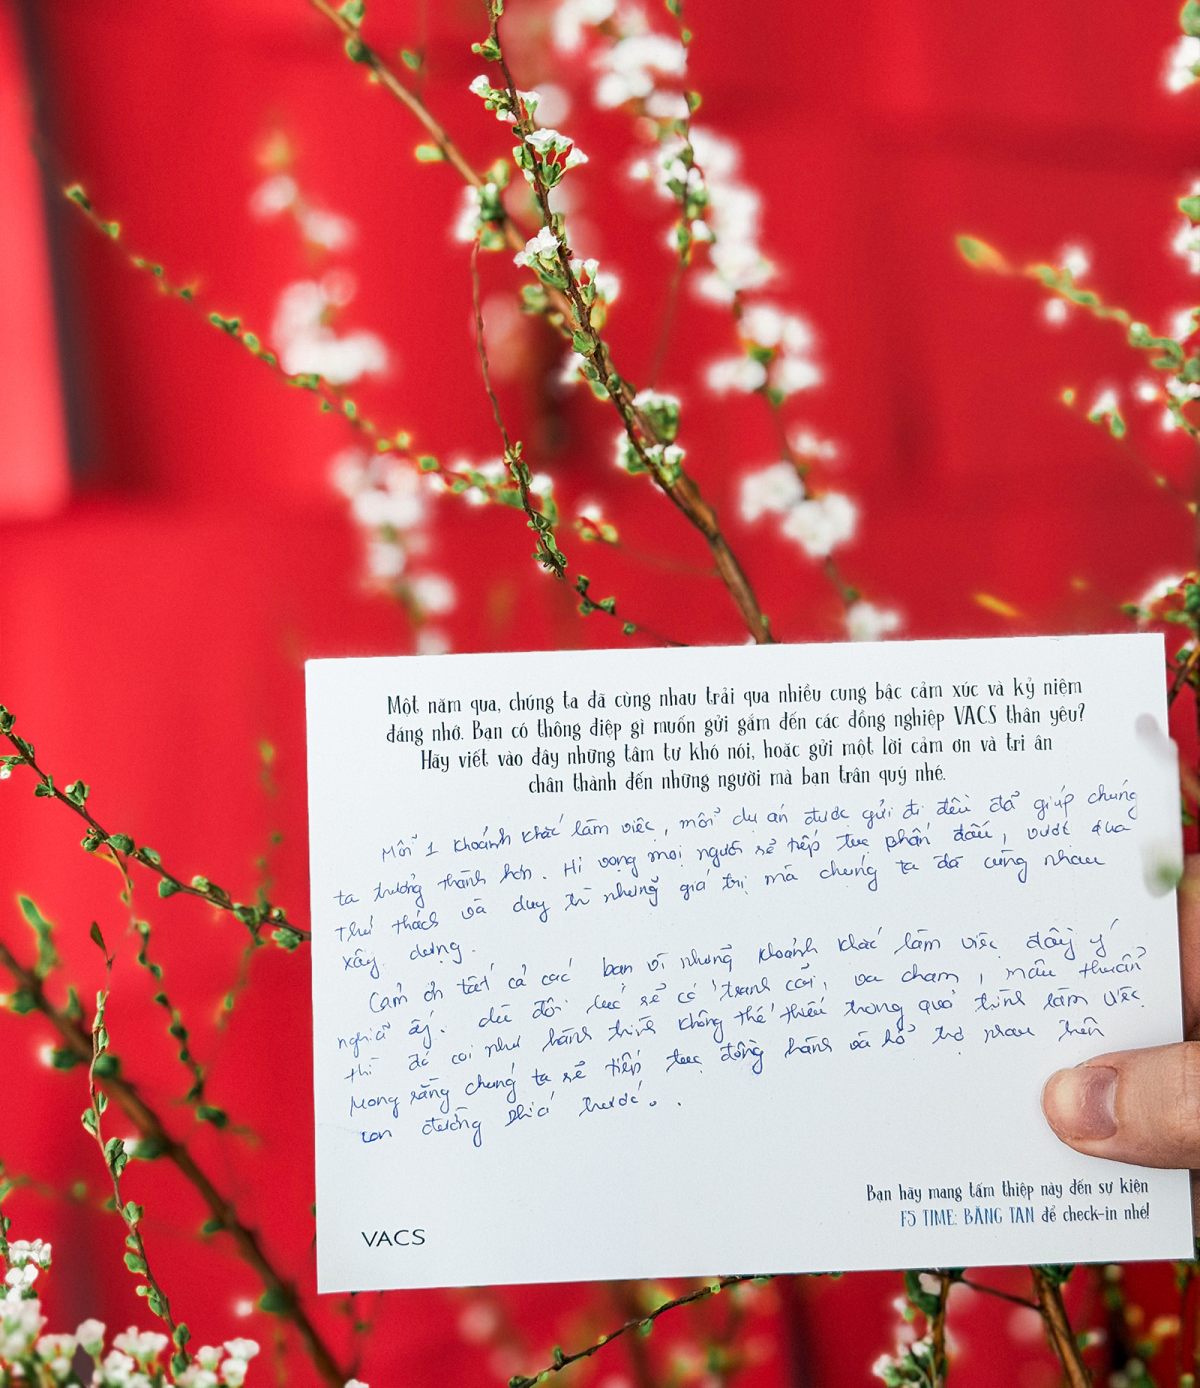 Một năm qua, chúng ta đã cùng nhau trải qua nhiều cung bậc cảm xúc và kỷ niệm
đáng nhớ. Bạn có thông điệp gì muốn gửi gắm đến các đồng nghiệp VACS thân yêu?
Hãy viết vào đây những tâm tư khó nói, hoặc gửi một lời cảm ơn và tri ân
chân thành đến những người mà bạn trân quý nhé.
Mỗi 1 khoảnh khắc làm việc, mỗi dự án được gửi đi đều đã giúp chúng
ta trưởng thành hơn. Hi vọng mọi người sẽ tiếp tục phấn đấu, vượt qua
thử thách và duy trì những giá trị mà chúng ta đã cùng nhau
xây dựng.
Cảm ơn tất cả các bạn vì những khoảnh khắc làm việc đầy ý
nghĩa ấy. dù đôi lúc sẽ có tranh cãi, va chạm, mâu thuẫn
thì đó coi như hành trình không thể thiếu trong quá trình làm việc.
Mong rằng chúng ta sẽ tiếp tục đồng hành và hỗ trợ nhau trên
con đường phía trước..
Bạn hãy mang tấm thiệp này đến sự kiện
F5 TIME: BĂNG TAN để check-in nhé!
VACS